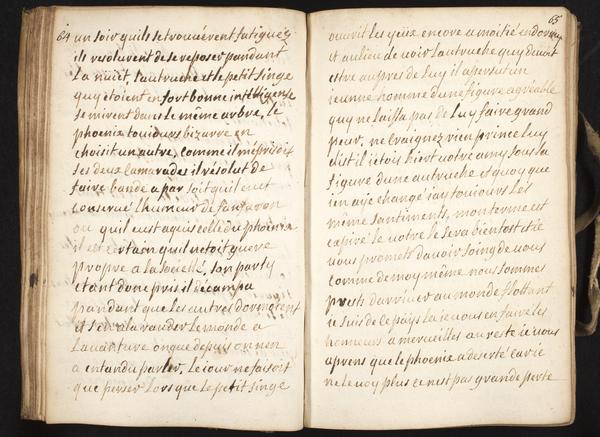 64
un soir quils se trouverent fatiguez
ils resolurent de se reposer pandant
la nuict, l'autruche et le petit singe
quy étoient en fort bonne intelligense
se mirent dans le même arbre, le
phoenix toujours bizarre en
choisit un autre, comme il méprisoit
ses deux camarades il résolut de
faire bande a par soit quil eut
conservé l'humeur de fanfaron
ou quil eust aquis celle du phoenix
il est certain quil netoit guere
propre a la societé, son party
etant donc pris il décampa
pandant que les autres dormoient
et s'en ala rauder le monde a
lavanture on que depuis on nen
a entandu parler. le jour ne faisoit
que perser lors que le petit singe
65
ouvrit les yeux encore a moitié endormy
et au lieu de voir lautruche quy devoit
estre aupres de luy il apersut un
jeunne homme dune figure agreable
quy ne laissa pas de luy faire grand
peur, ne craignez rien prince luy
dist il jetois hier votre amy sous la
figure dune autruche et quoy que
jen aye changé jay toujours les
même santiments, mon terme est
expiré le votre le sera bientost et je
vous promets davoir soing de vous
comme de moy même nous sommes
prests darriver au monde flottant
je suis de ce pays la je vous en faire les
honneurs a merveilles au reste je vous
aprens que le phoenix a deserté car je
ne le voy plus ce nest pas grande perte